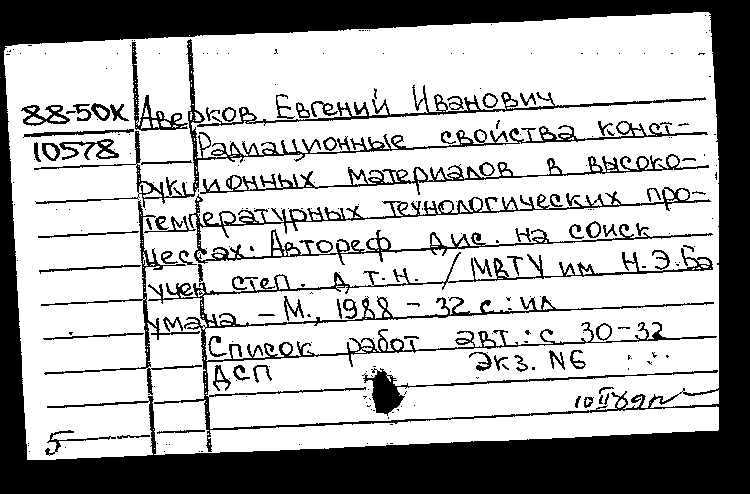 88-50X Аверков, Евгений Иванович
10578 Радиационные свойства конст-
рукционных материалов в высоко-
температурных технологических про-
цессах. Автореф дис. на соиск
учен. степ. д.т.н. / МВТУ им Н.Э.Ба
умана. - М., 1988 - 32 с.: ил
Список работ авт.: с. 30-32
ДСП Экз. N6
10 II 89г
5